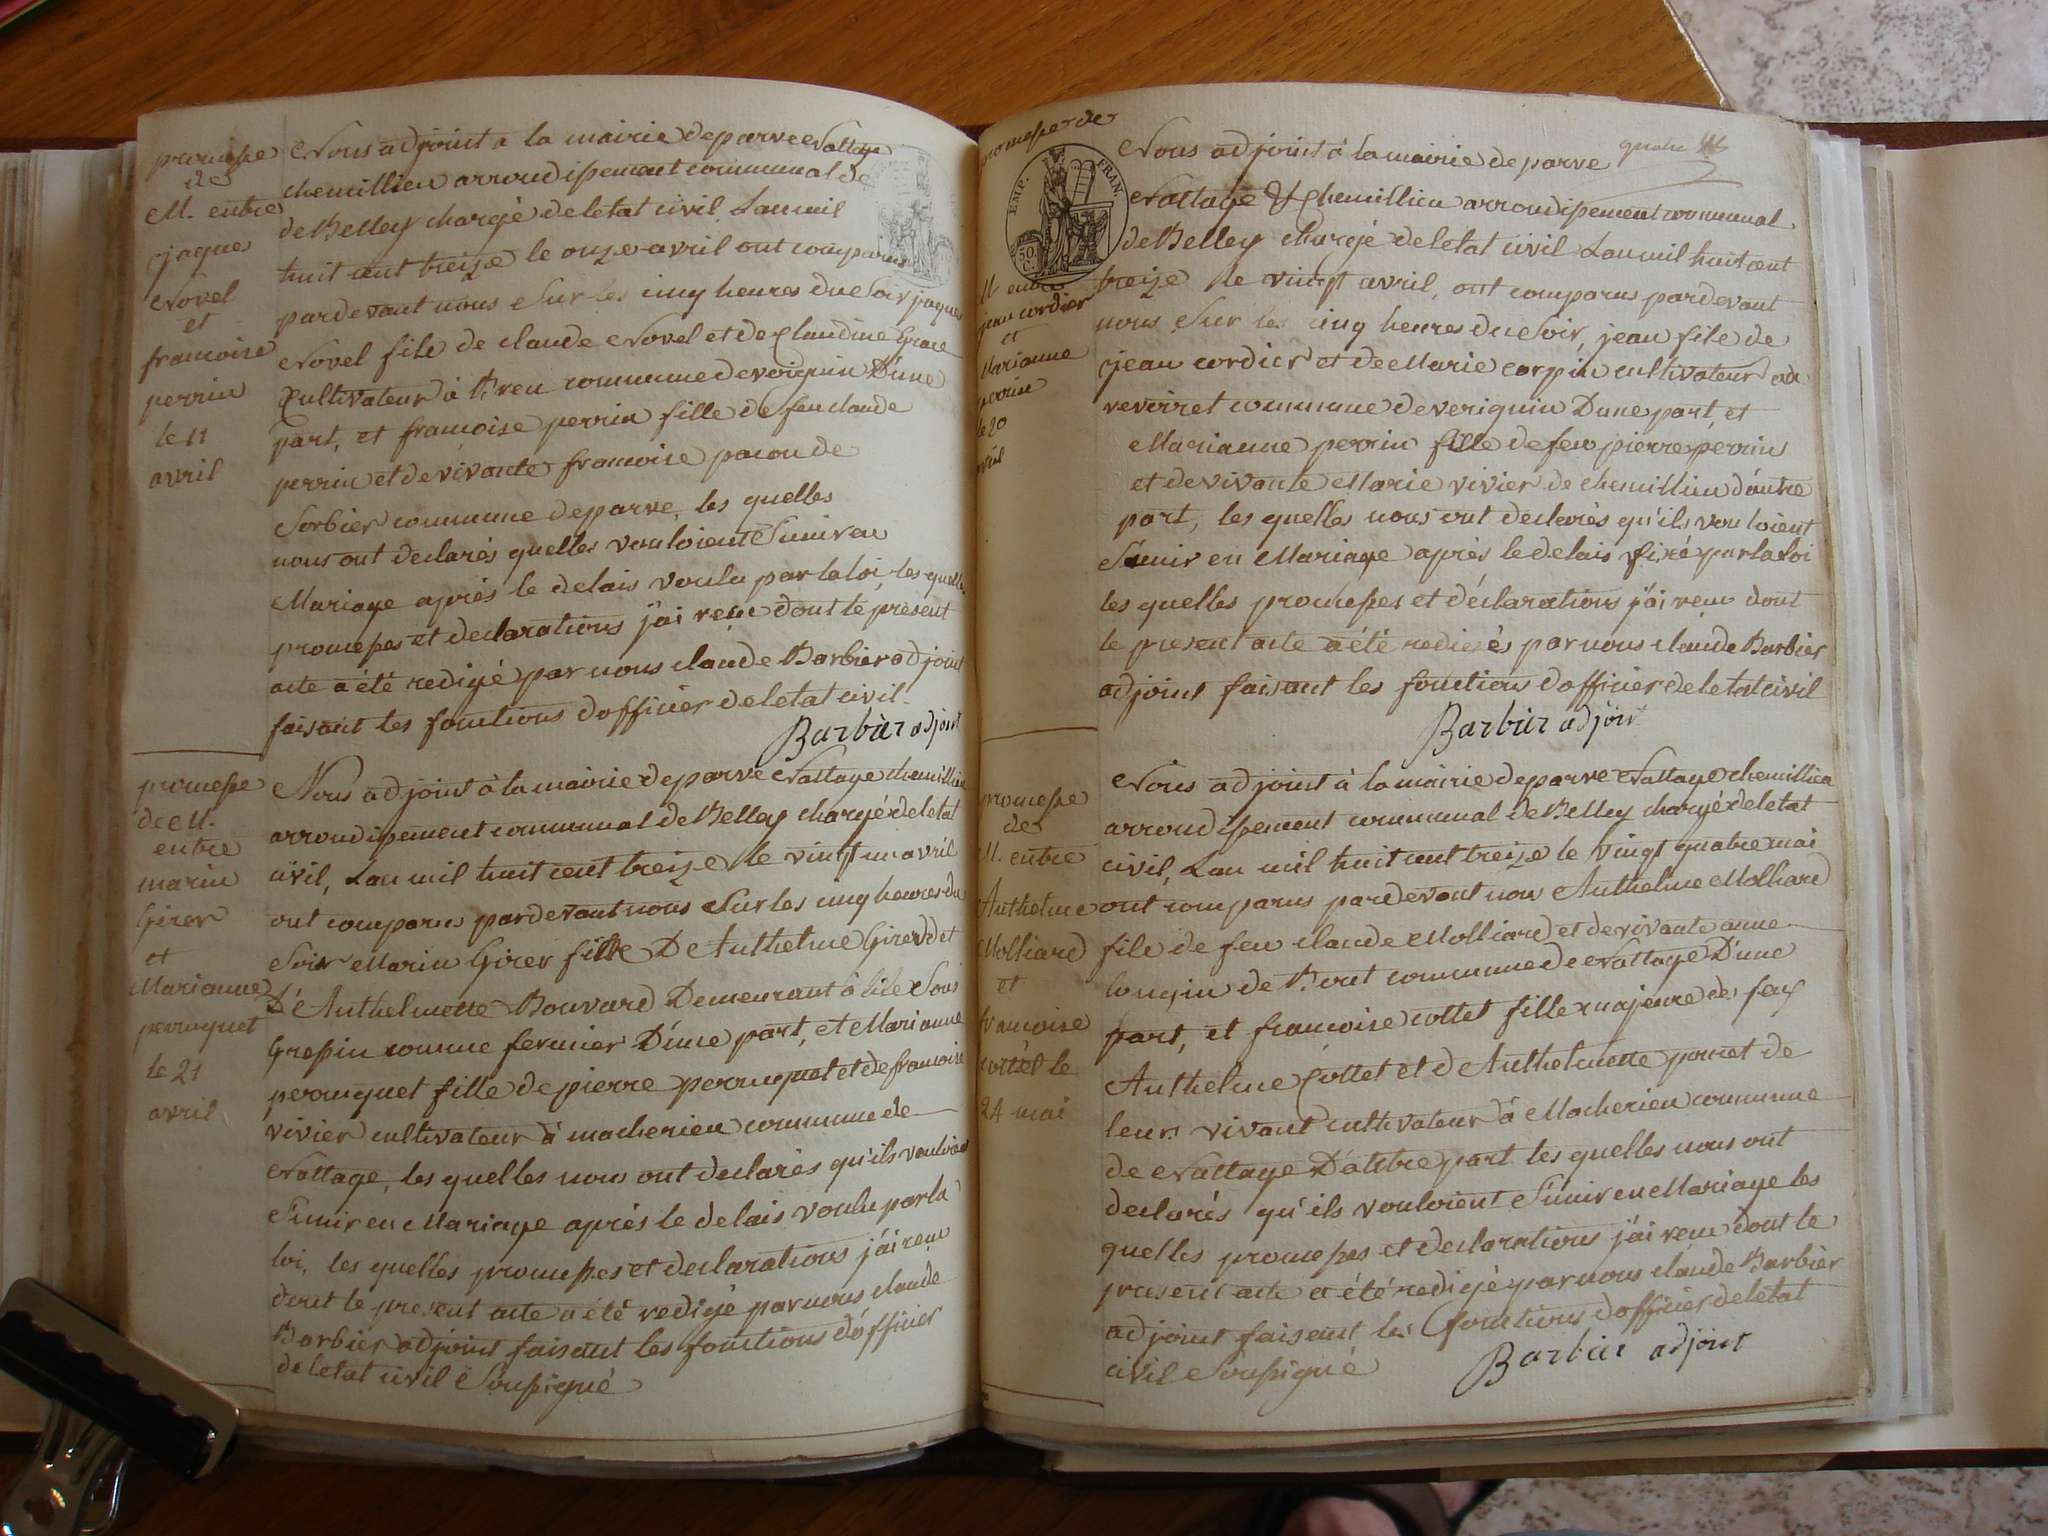 promesse
de
M. entre
jaques
Novel
et
francoise
perrin
le 11
avril
Nous adjoint a la mairie de parve Nattage
chemillieu arrondissement communal de
de Belley chargé de letat civil Lan mil
huit cent treize le onze avril ont comparus
pardevant nous Sur les cinq heures du Soir jaques
Novel fils de claude Novel et de Claudine
Cultivateur à commune de D'une
part, et francoise perrin fille de feu claude
perrin et de vivante francoise de
Sorbier commune de parve, les quelles
nous ont declarés quelles vouloient S'unir en
Mariage après le delais voulu par la loi, les quelles
promesses et declarations j'ai reçue dont le présent
acte a été redigé par nous claude Barbier adjoint
faisant les fonctions dofficier de letat civil
Barbier adjoint
promesse
de M.
entre
marin
Girer
et
Marianne
perruquet
le 21
avril
Nous adjoint à la mairie de parve Nattage chemillieu
arrondissement communal de Belley chargé de letat
civil, Lan mil huit cent treize le vingt un avril
ont comparus pardevant nous Sur les cinq heures du
Soir Marin Girer fils De Anthelme Girer et
D'Anthelmette Bouvard Demeurant à Sous
Gressin comme fermier D'une part, et Marianne
perruquet fille de pierre perruquet et de francoise
vivier cultivateur à macherieu commune de
Nattage, les quelles nous ont declarés qu'ils vouloient
S'unir en Mariage après le delais voulu par la
loi, les quelles promesses et declarations j'ai reçu
dont le present acte a été redigé par nous claude
Barbier adjoint faisant les fonctions d'officier
de letat civil Soussigné
promesse de
EMP. FRAN.
50 C.
M entre
jean cordier
et
Marianne
perrin
le 20
avril
quatre
Nous adjoint à la mairie de parve
Nattage & Chemillieu arrondissement communal
de Belley chargé de letat civil Lan mil huit cent
treize le vingt avril, ont comparus pardevant
nous Sur les cinq heures du Soir, jean fils de
jean cordier et de Marie corpin cultivateur
commune de D'une part, et
Marianne perrin fille de feu pierre perrin
et de vivante Marie vivier de chemillieu d'autre
part, les quelles nous ont declarés qu'ils vouloient
S'unir en Mariage après le delais fixé par la loi
les quelles promesses et déclarations j'ai reçue dont
le present acte a été redigés par nous claude Barbier
adjoint faisant les fonctions dofficier de letat civil
Barbier adjoint
promesse
de
M. entre
Anthelme
Molliard
et
francoise
cottet le
24 mai
Nous adjoint à la mairie de parve Nattage chemillieu
arrondissement communal de Belley chargé de letat
civil, Lan mil huit cent treize le vingt quatre mai
ont comparus pardevant nous Anthelme Molliard
fils de feu claude Molliard et de vivante anne
longin de commune de Nattage D'une
part, et francoise cottet fille majeure de feux
Anthelme Cottet et d'Anthelmette de
leurs vivant cultivateur à Macherieu commune
de Nattage D'autre part les quelles nous ont
declarés qu'ils vouloient S'unir en Mariage les
quelles promesses et declarations j'ai reçue dont le
present acte a été redigé par nous claude Barbier
adjoint faisant les fonctions dofficier de letat
civil Soussigné
Barbier adjoint